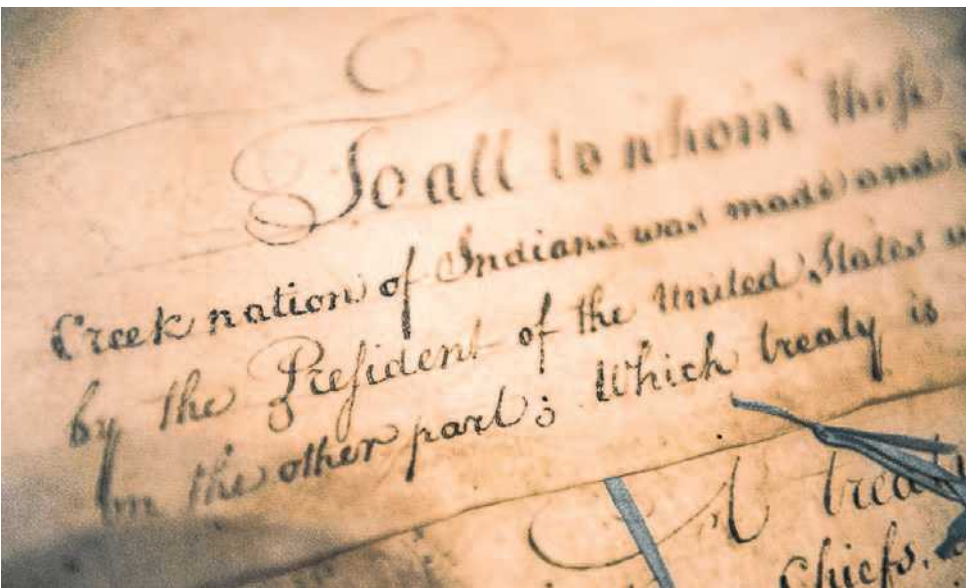 To all to whom these
Creek nation of Indians was made and
by the President of the United States
on the other part; Which treaty is
A treaty
Chiefs.